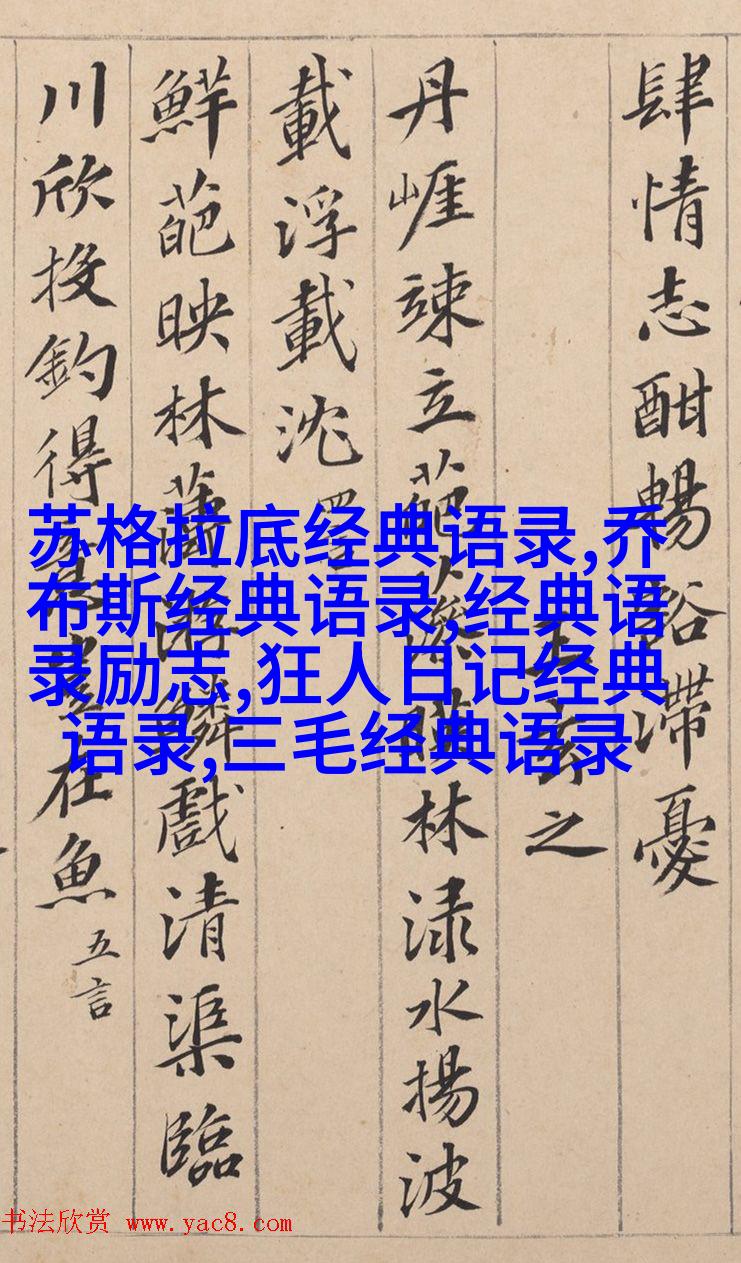 肆情志酣暢豁滯憂
王玄之
丹崕竦立葩藻暎林渌水揚波
載浮載沈
鮮葩映林薄游鱗戲清渠臨
川欣投釣得意豈在魚 五言
苏格拉底经典语录,乔
布斯经典语录,经典语
录励志,狂人日记经典
语录,三毛经典语录
书法欣赏 www.yac8.com